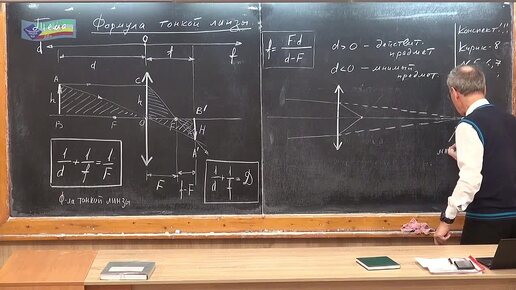 Тема Формула тонкой линзы
d O f
d f
A C
h h
B F O F B'
H
A'
F f-F
1/d + 1/f = 1/F
1/d + 1/f = D
Ф-ла тонкой линзы
f = Fd/(d-F)
d > 0 - действит. предмет
d < 0 - мнимый предмет
Конспект!!!
Кирик-8